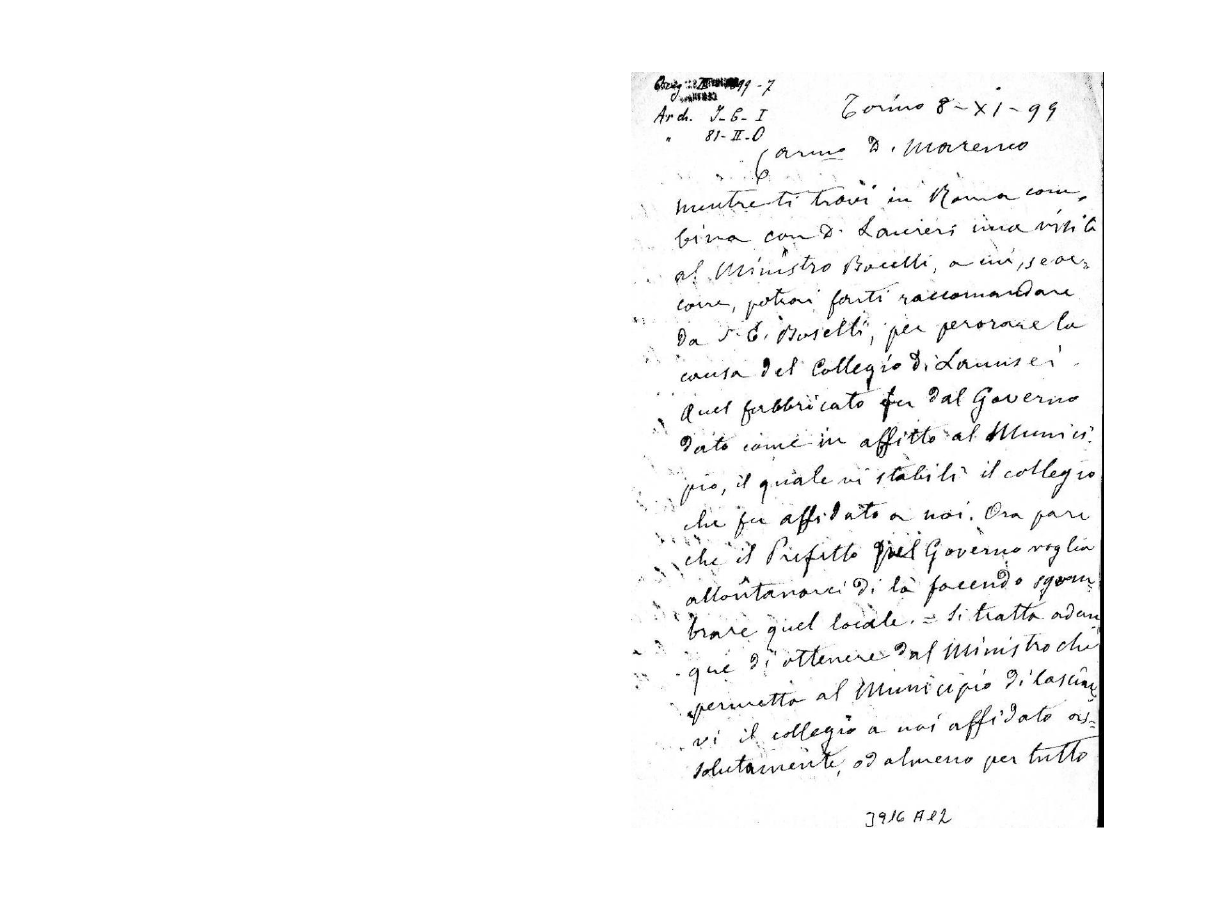 1899-7
Arch. J-6-I
" 81-II-0
Torino 8-XI-99
Carmo D. Marenco
mentre ti trovi in Roma com-
bina con D. Laureri una visita
al Ministro Bacelli, a cui, se oc-
corre, potrai farti raccomandare
da S. E. Boselli, per perorare la
causa del Collegio di Lanusei.
Quel fabbricato fu dal Governo
dato come in affitto al Munici-
pio, il quale vi stabilì il collegio
che fu affidato a noi. Ora pare
che il Prefetto pel Governo voglia
allontanarci di là facendo sgom-
brare quel locale. = Si tratta adun
que di ottenere dal Ministro che
permetta al Municipio di lasciar
vi il collegio a noi affidato as-
solutamente, od almeno per tutto
3916 A12